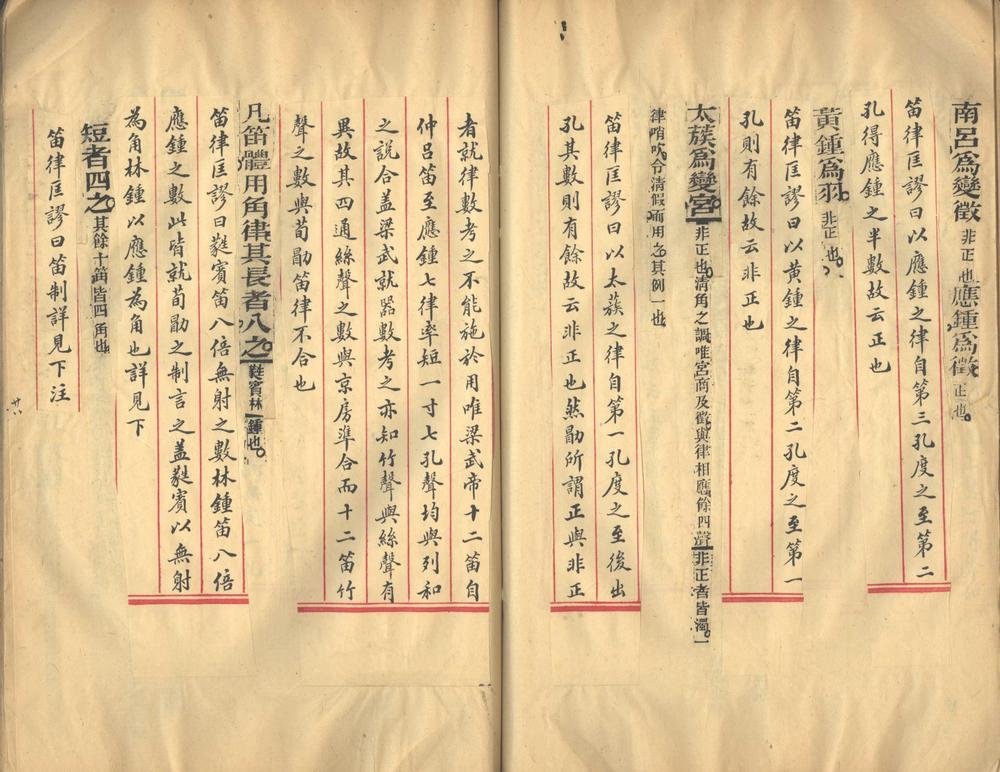 南呂爲變徵非正也應鍾爲徵正也
笛律匡謬曰以應鍾之律自第三孔度之至第二
孔得應鍾之半數故云正也
黃鍾爲羽非正也
笛律匡謬曰以黃鍾之律自第二孔度之至第一
孔則有餘故云非正也
太蔟爲變宮非正也清角之調唯宮商及徵與律相應餘四聲非正者皆濁一
律哨吹令清假而用之其例一也
笛律匡謬曰以太蔟之律自第一孔度之至後出
孔其數則有餘故云非正也然勖所謂正與非正
者就律數考之不能施於用唯梁武帝十二笛自
仲呂笛至應鍾七律率短一寸七孔聲均與列和
之說合盖梁武就器數考之亦知竹聲與絲聲有
異故其四通絲聲之數與京房準合而十二笛竹
聲之數與荀勖笛律不合也
凡笛體用角律其長者八之蕤賓林鍾也
笛律匡謬曰蕤賓笛八倍無射之數林鍾笛八倍
應鍾之數此皆就荀勖之制言之盖蕤賓以無射
為角林鍾以應鍾為角也詳見下
短者四之其餘十笛皆四角也
笛律匡謬曰笛制詳見下注
廿八